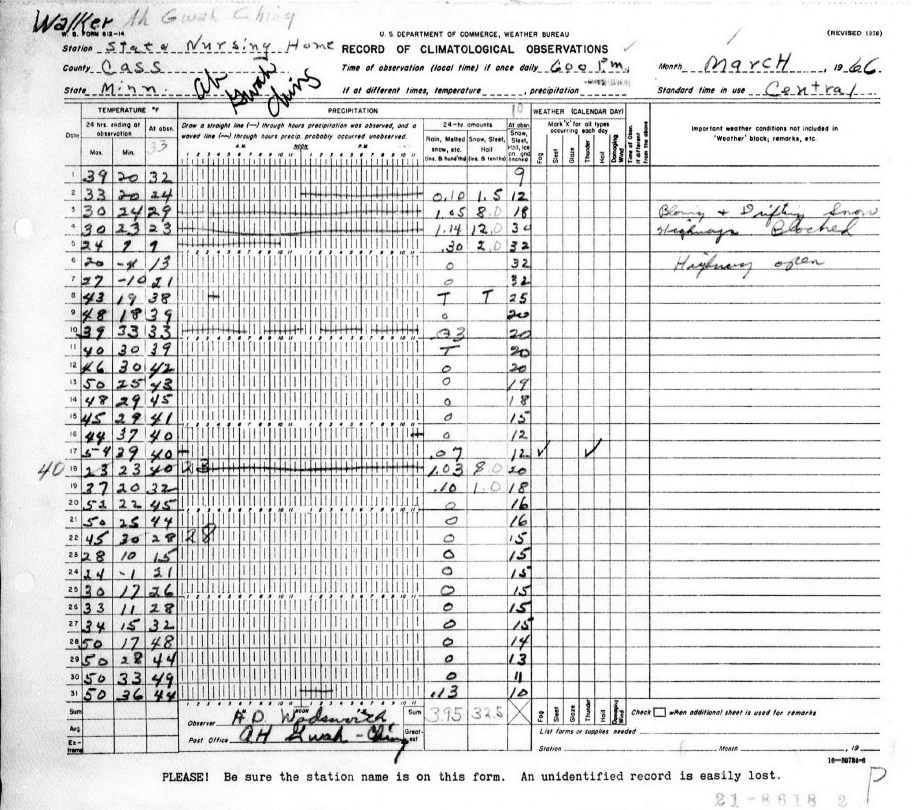 Walker Ah Gwah Ching
W. B. FORM 612-14
U. S. DEPARTMENT OF COMMERCE, WEATHER BUREAU
(REVISED 1958)
Station State Nursing Home
RECORD OF CLIMATOLOGICAL OBSERVATIONS
County Cass
Time of observation (local time) if once daily 600 P.m.
Month MARCH, 1966.
State Minn
Ah Gwah Ching
If at different times, temperature , precipitation
Standard time in use Central
TEMPERATURE °F PRECIPITATION 10 WEATHER (CALENDAR DAY)
Date 24 hrs. ending at observation Max. Min. At obsn. 33
Draw a straight line (—) through hours precipitation was observed, and a waved line (~) through hours precip. probably occurred unobserved.
A.M. NOON P.M.
1 2 3 4 5 6 7 8 9 10 11 1 2 3 4 5 6 7 8 9 10 11
24-hr. amounts Rain, Melted snow, etc. (Ins. & hundths) Snow, Sleet, Hail (Ins. & tenths) At obsn. Snow, Sleet, Hail, Ice on gnd (Inches)
Mark 'X' for all types occurring each day
Fog Sleet Glaze Thunder Hail Damaging Wind Time of Obsn. if different from the above
Important weather conditions not included in 'Weather' block; remarks, etc.
1 39 20 32 9
2 33 20 24 0.10 1.5 12
3 30 24 29 1.05 8.0 18 Blowing + Drifting Snow
4 30 23 23 1.14 12.0 30 Highways Blocked
5 24 7 9 .30 2.0 32
6 20 -4 13 0 32 Highway open
7 27 -10 21 0 32
8 43 19 38 T T 25
9 48 18 39 0 20
10 39 33 33 .03 20
11 40 30 39 T 20
12 46 30 42 0 20
13 50 25 43 0 19
14 48 29 45 0 18
15 45 29 41 0 15
16 44 37 40 0 12
17 54 39 40 .07 12 ✓ ✓
40 18 23 23 40 23 1.03 8.0 20
19 37 20 32 .10 1.0 18
20 52 22 45 0 16
21 50 25 44 0 16
22 45 30 28 28 0 15
23 28 10 15 0 15
24 24 -1 21 0 15
25 30 17 26 0 15
26 33 11 28 0 15
27 34 15 32 0 15
28 50 17 48 0 14
29 50 28 44 0 13
30 50 33 49 0 11
31 50 36 44 .13 10
Sum NOON Sum 3.95 32.5 Fog Sleet Glaze Thunder Hail Damaging Wind Check when additional sheet is used for remarks
Avg. Observer A.D. Wadsworth
List forms or supplies needed
Extreme Post Office AH Gwah-Ching Greatest
Station , Month , 19
16—59784-6
PLEASE! Be sure the station name is on this form. An unidentified record is easily lost.
P
21-8618 2